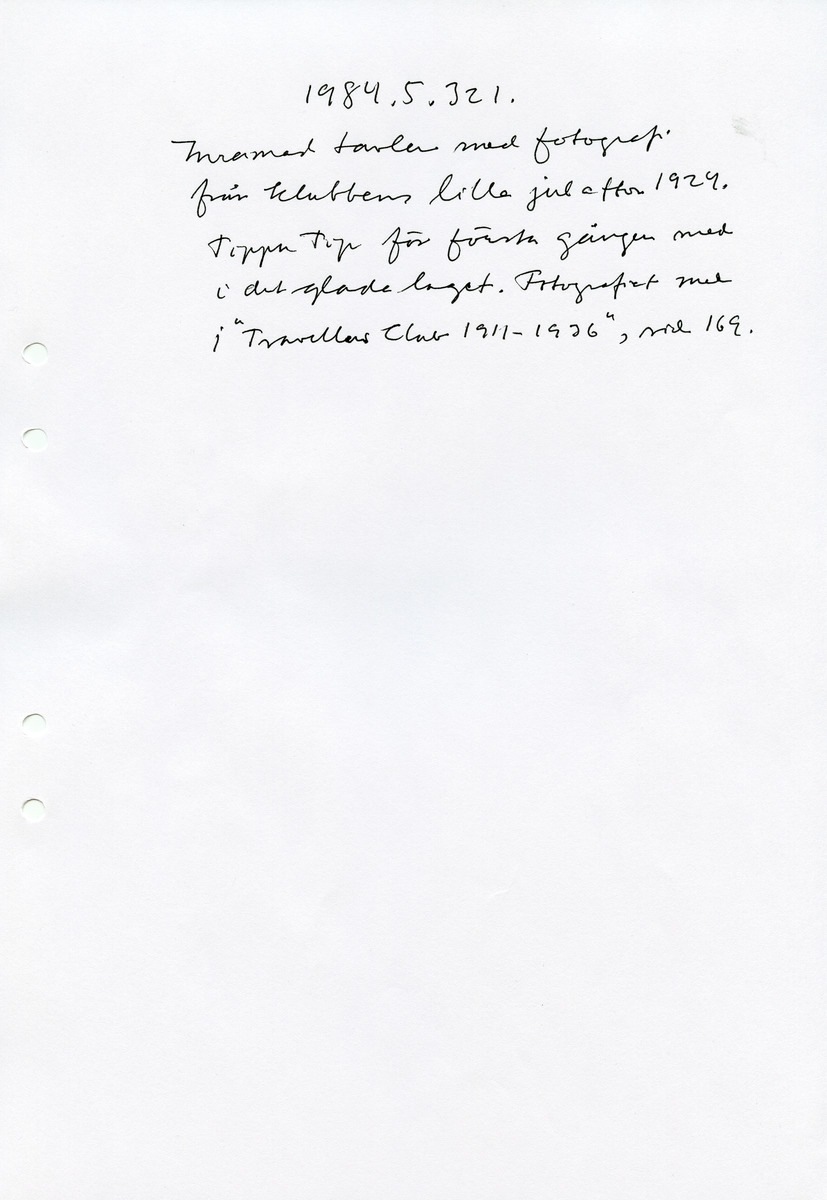 1984.5.321.
Inramad tavla med fotografi
från klubbens lilla julafton 1929.
Tippu Tip för första gången med
i det glada laget. Fotografiet med
i "Travellers Club 1911-1936", sid 169.